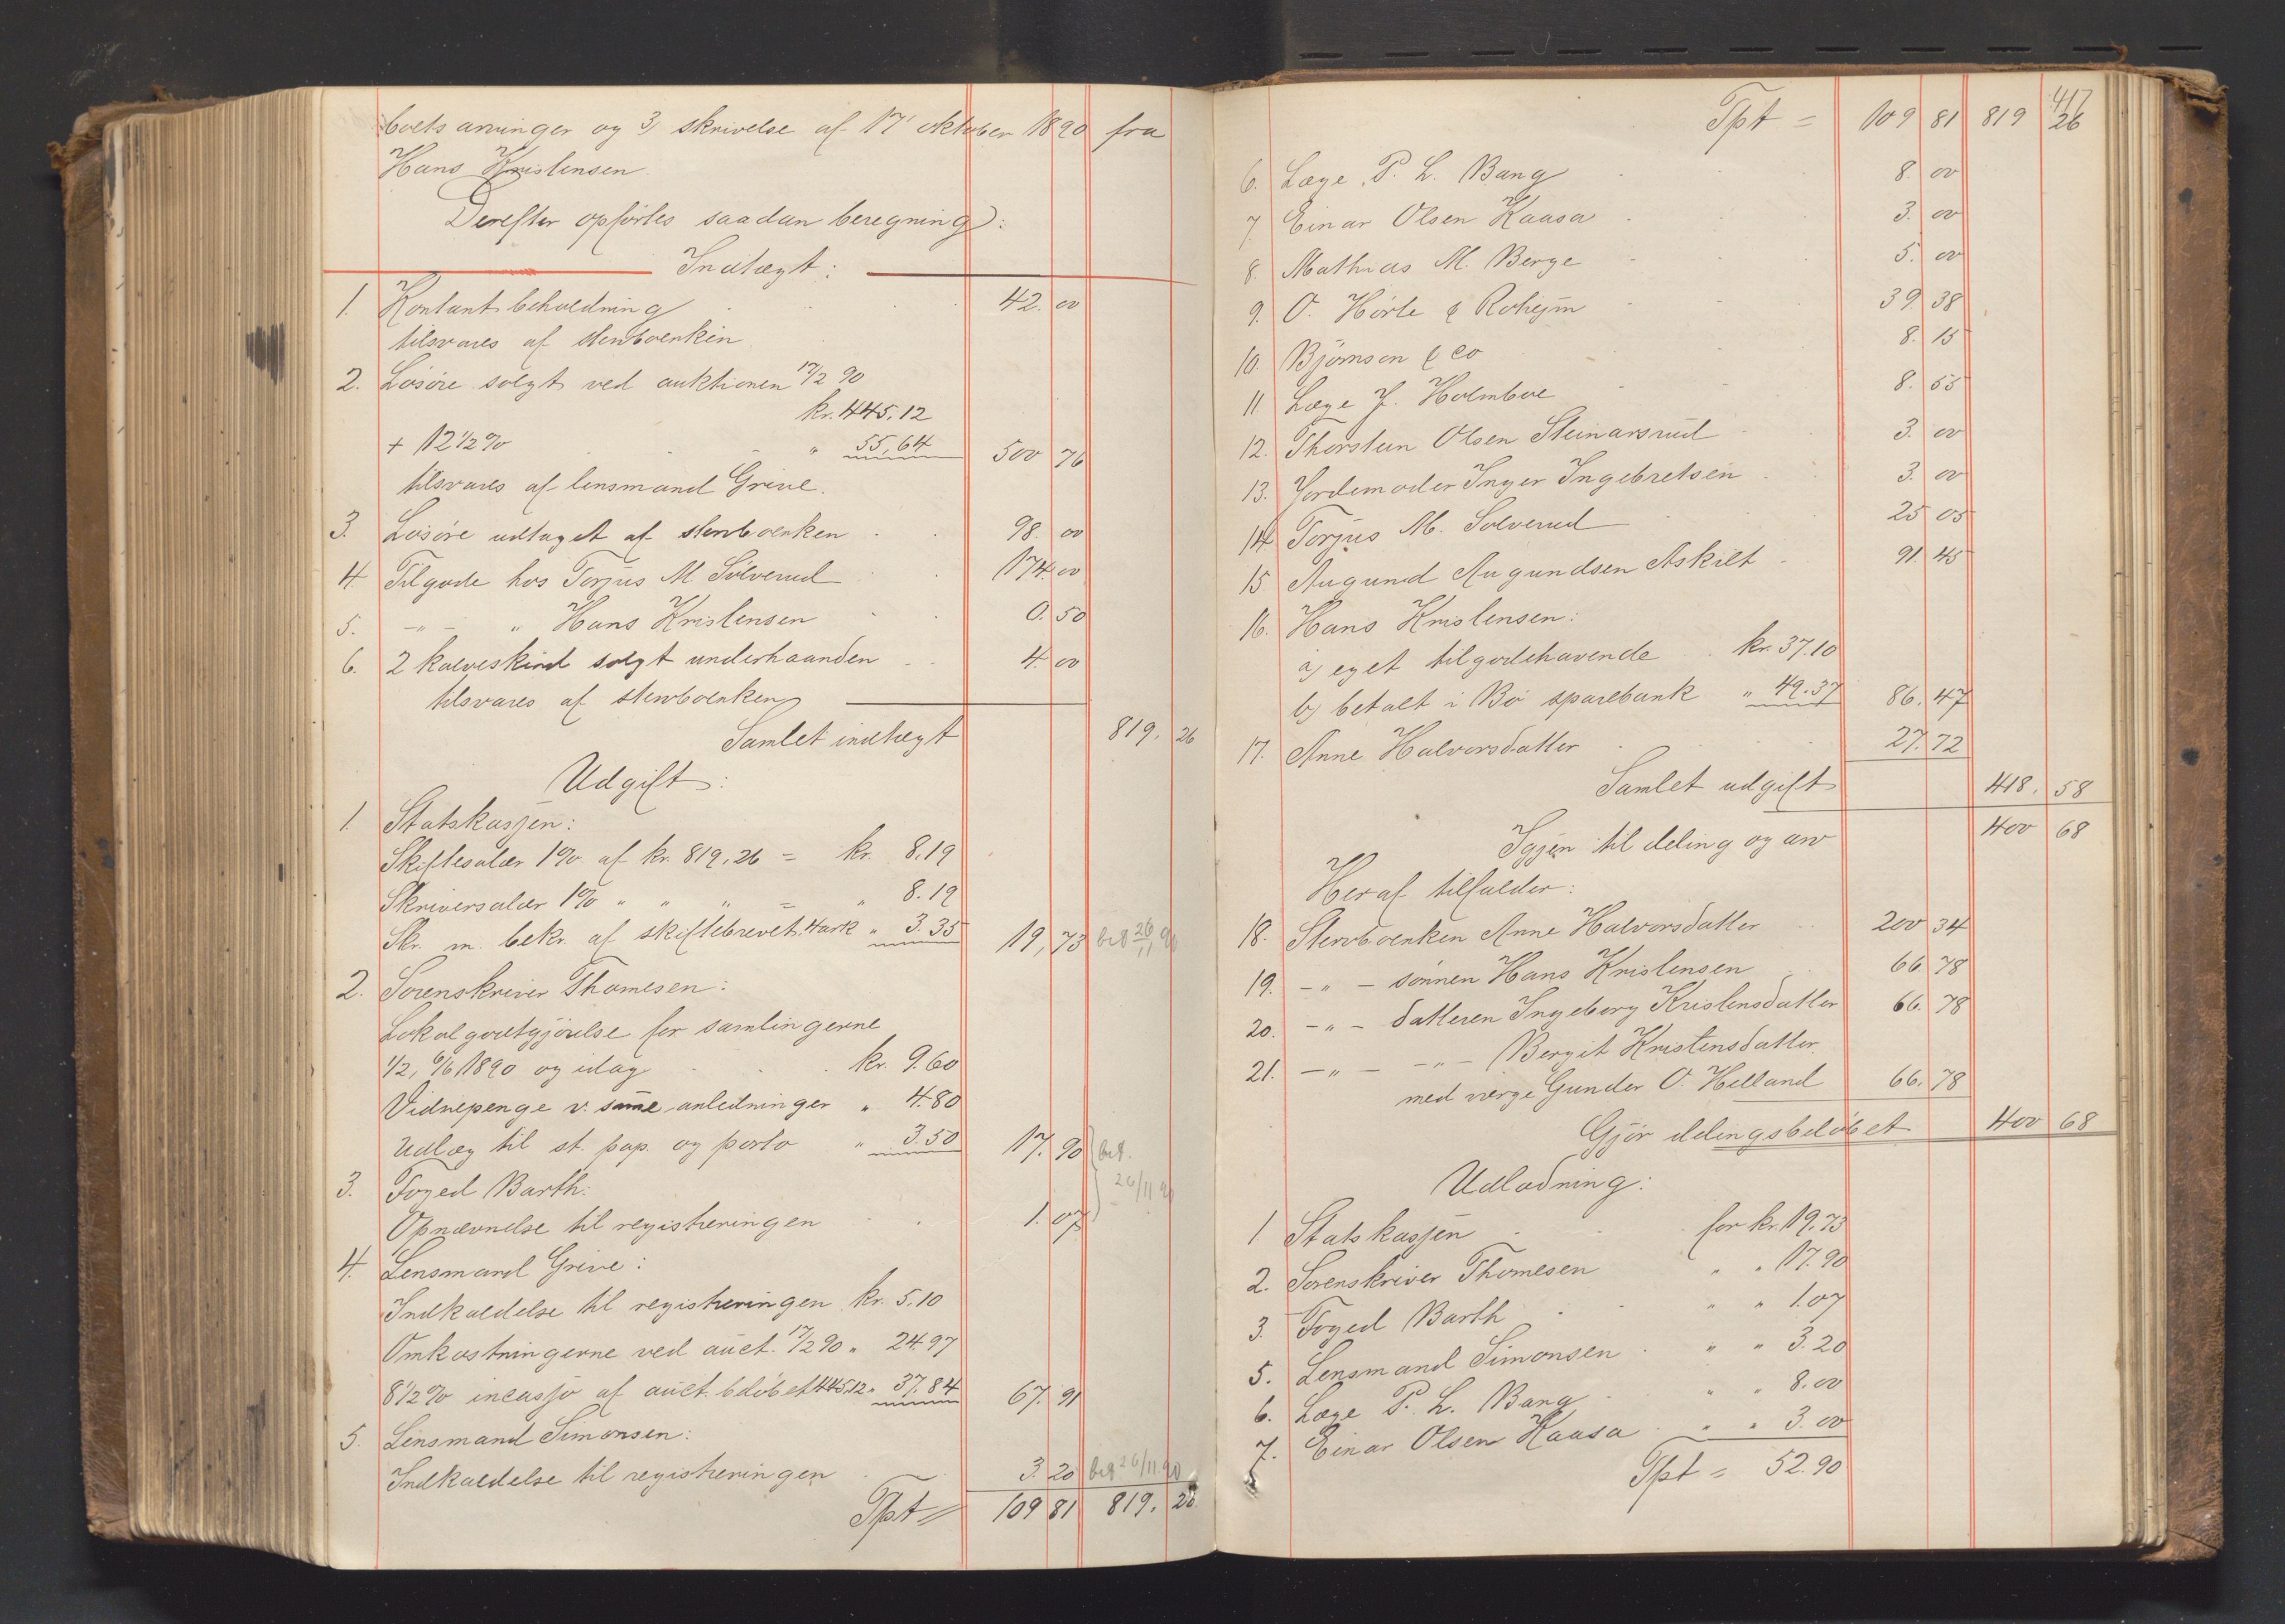 boets arvinger og 3, skrivelse af 17' oktober 1890 fra
Hans Kristensen.
Derefter opførtes saadan beregning:
Indtægt:
1. Kontant beholdning 42. 00
tilsvares af sterboenken
2. Løsøre solgt ved auktionen 17/2 90
kr. 445.12
+ 12 1/2 % " 55,64 500 76
tilsvares af lensmand Grive.
3. Løsøre udtaget af sterboenken 98. 00
4. Tilgode hos Torjus M Sölverud 174. 00
5. -"- " Hans Kristensen 0. 50
6. 2 kalveskind solgt underhaanden 4. 00
tilsvares af sterboenken
Samlet indtægt 819. 26
Udgift:
1. Statskassen:
Skiftesalær 1% af kr. 819,26 = kr. 8,19
Skriversalær 1% " " " = " 8.19
Skr. m. bekr. af skiftebrevet, 4 ark " 3.35 19, 73 bet 26/11 90
2. Sorenskriver Thomesen:
Lokalgodtgjörelse for samlingerne
1/2, 6/6 1890 og idag kr. 9.60
Vidnepenge v. same anledninger " 4.80
Udlæg til st. pap. og porto " 3.50 17. 90 bet.
3. Foged Barth: 26/11 90
Opnævnelse til registreringen 1. 07
4. Lensmand Grive:
Indkaldelse til registreringen kr. 5.10
Omkostningerne ved auct. 17/2 90 " 24.97
8 1/2 % incasso af auct. beløbet 445.12 " 37.84 67. 91
5. Lensmand Simonsen:
Indkaldelse til registreringen 3. 20 bet 26/11.90
Tpt = 109 81 819. 26
417
Tpt = 109 81 819 26
6. Læge P. L. Bang 8. 00
7. Einar Olsen Kaasa 3. 00
8. Mathias M. Berge 5. 00
9. O. Hörte & Roheim 39. 38
10. Björnson & Co 8. 15
11 Læge J. Holmboe 8. 55
12. Thorstein Olsen Steinarsrud 3. 00
13. Jordemoder Inger Ingebretsen 3. 00
14 Torjus M. Solverud 25 05
15 Augund Augundsen Askilt 91. 45
16. Hans Kristensen:
a) eget tilgodehavende kr. 37.10
b) betalt i Bö sparebank " 49.37 86. 47
17. Anne Halvorsdatter 27. 72
Samlet udgift 418. 58
Igjen til deling og arv 400 68
Heraf tilfalder:
18. Sterboenken Anne Halvorsdatter 200 34
19. -"- sönnen Hans Kristensen 66 78
20. -"- datteren Ingeborg Kristensdatter 66. 78
21. -"- -"- Bergit Kristensdatter
med værge Gunder O. Helland 66. 78
Gjør delingsbeløbet 400 68
Udlodning:
1 Statskassen for kr. 19.73
2. Sorenskriver Thomesen " " 17.90
3. Foged Barth " " 1.07
5. Lensmand Simonsen " " 3.20
6. Læge P. L. Bang " " 8.00
7. Einar Olsen Kaasa " " 3.00
Tpt = 52.90